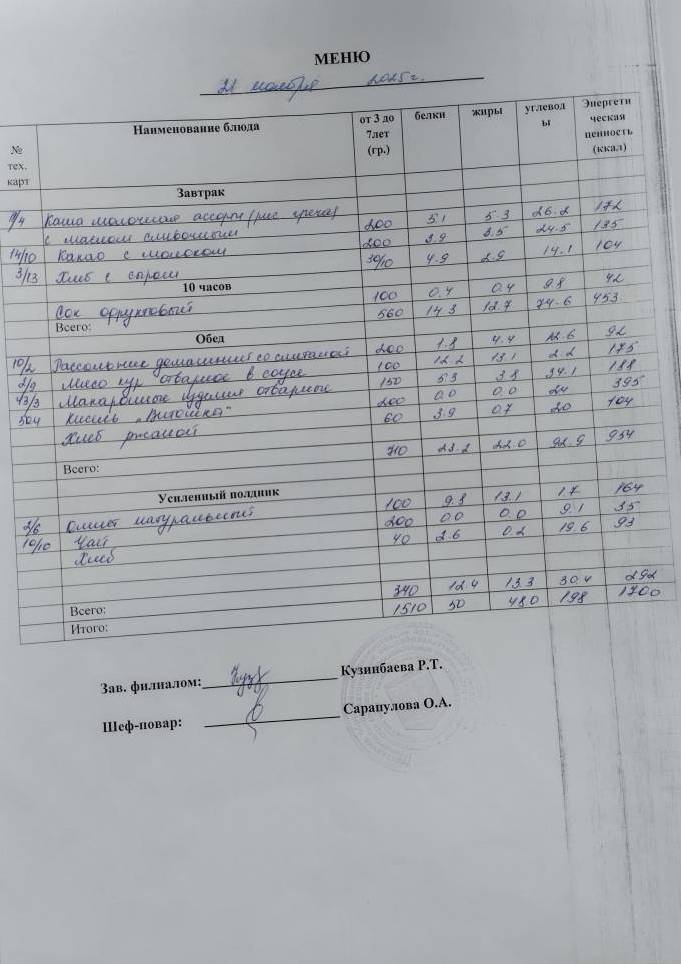 МЕНЮ
21 ноября 2025г.
№ тех. карт Наименование блюда от 3 до 7лет (гр.) белки жиры углевод ы Энергети ческая ценность (ккал)
Завтрак
Каша молочная ассорти (рис гречка)
/4 с маслом сливочным 200 5.1 5.3 26.2 172
14/10 Какао с молоком 200 3.9 3.5 24.5 135
3/13 Хлеб с сыром 30/10 4.9 2.9 14.1 104
10 часов
Сок фруктовый 100 0.4 0.4 9.8 42
Всего: 560 14.3 12.7 74.6 453
Обед
10/2 Рассольник домашний со сметаной 200 1.8 4.4 12.6 92
2/9 Мясо кур отварное в соусе 100 12.2 13.1 2.2 175
43/3 Макаронные изделия отварные 150 5.3 3.8 34.1 188
504 Кисель „Витошка" 200 0.0 0.0 24 395
Хлеб ржаной 60 3.9 0.7 20 104
Всего: 710 23.2 22.0 92.9 954
Усиленный полдник
2/6 Омлет натуральный 100 9.8 13.1 1.7 164
10/10 Чай 200 0.0 0.0 9.1 35
Хлеб 40 2.6 0.2 19.6 93
Всего: 340 12.4 13.3 30.4 292
Итого: 1510 50 48.0 198 1700
Зав. филиалом: Кузинбаева Р.Т.
Шеф-повар: Сарапулова О.А.